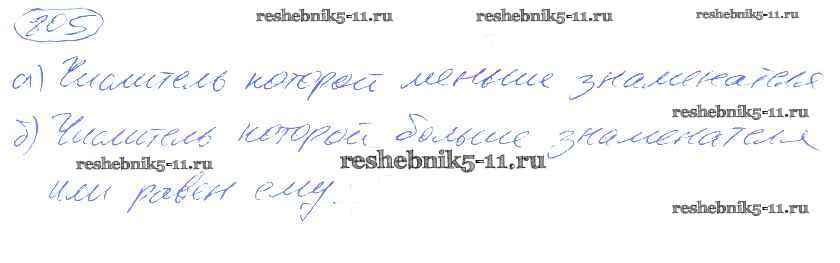 reshebnik5-11.ru reshebnik5-11.ru reshebnik5-11.ru
205
а) Числитель которой меньше знаменателя
reshebnik5-11.ru
б) Числитель которой больше знаменателя
reshebnik5-11.ru reshebnik5-11.ru
или равен ему.
reshebnik5-11.ru